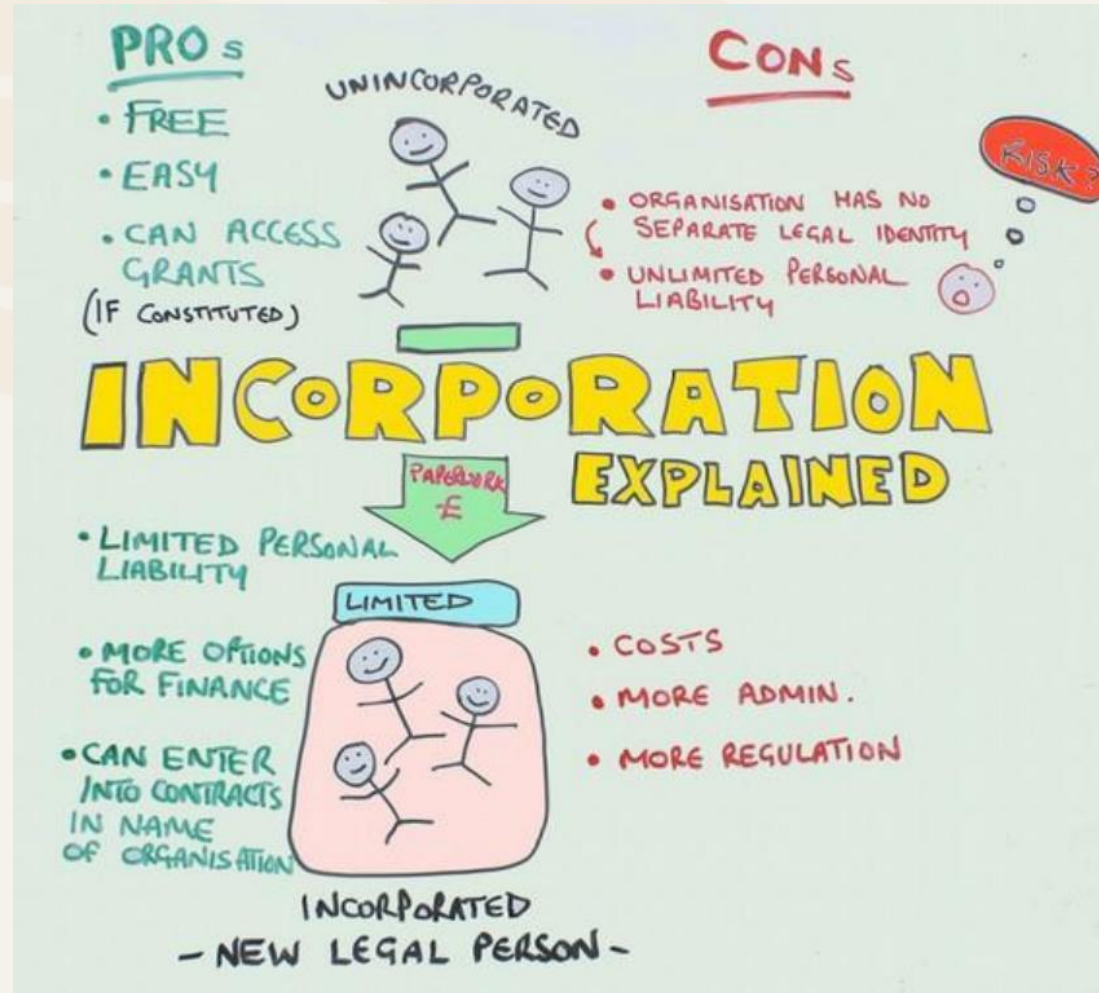 PROs
• FREE
• EASY
• CAN ACCESS
GRANTS
(IF CONSTITUTED)
UNINCORPORATED
CONs
RISK?
• ORGANISATION HAS NO
SEPARATE LEGAL IDENTITY
• UNLIMITED PERSONAL
LIABILITY
INCORPORATION
EXPLAINED
PAPERWORK
£
• LIMITED PERSONAL
LIABILITY
• MORE OPTIONS
FOR FINANCE
• CAN ENTER
INTO CONTRACTS
IN NAME
OF ORGANISATION
LIMITED
• COSTS
• MORE ADMIN.
• MORE REGULATION
INCORPORATED
- NEW LEGAL PERSON -